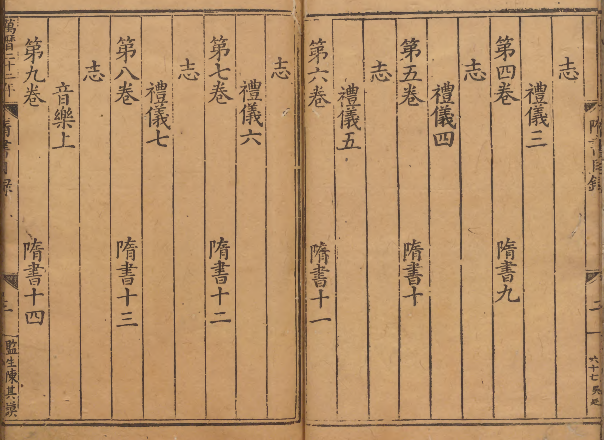 隋書目錄
六十七
志
禮儀三
第四卷 隋書九
志
禮儀四
第五卷 隋書十
志
禮儀五
第六卷 隋書十一
志
禮儀六
第七卷 隋書十二
志
禮儀七
第八卷 隋書十三
志
音樂上
第九卷 隋書十四
萬曆二十二年 隋書目錄 監生陳其謨